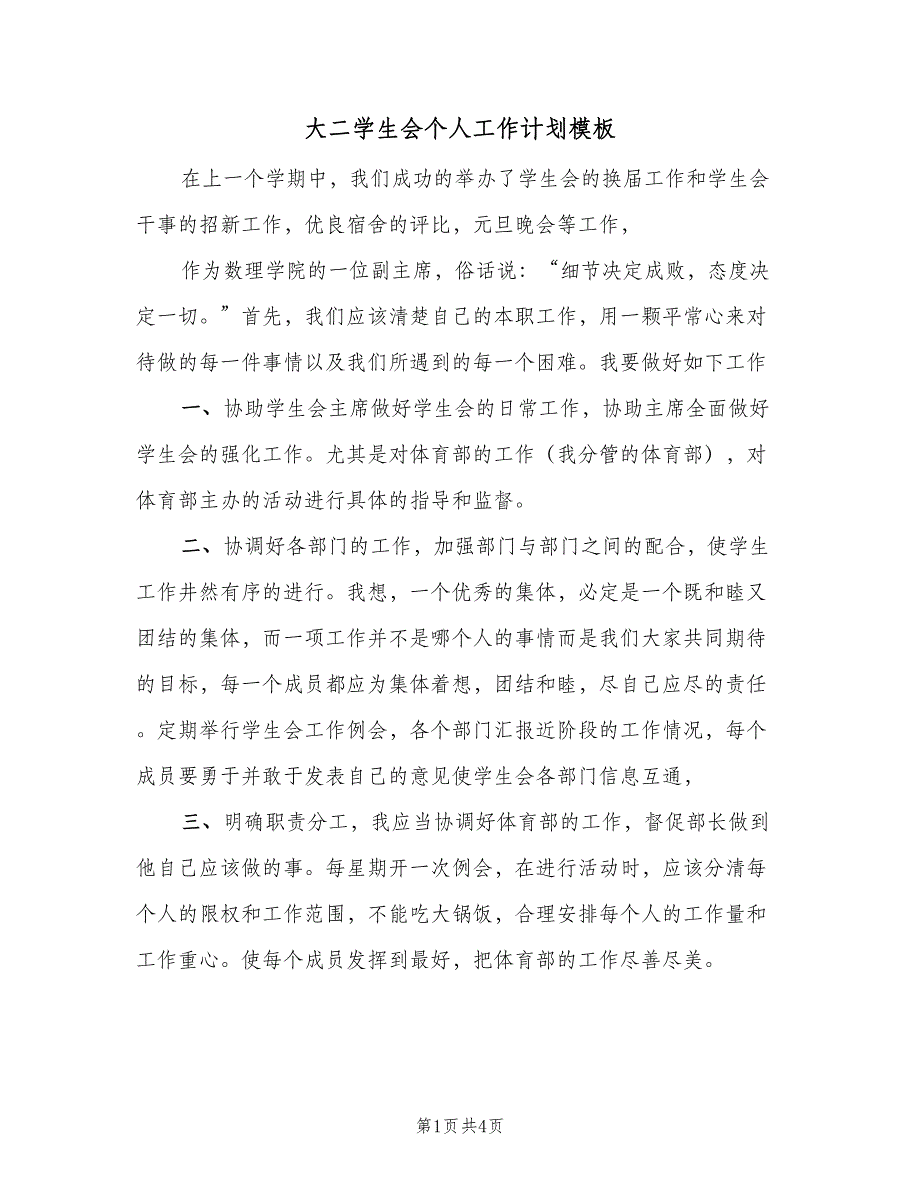 大二学生会个人工作计划模板
在上一个学期中，我们成功的举办了学生会的换届工作和学生会
干事的招新工作，优良宿舍的评比，元旦晚会等工作，
作为数理学院的一位副主席，俗话说：“细节决定成败，态度决
定一切。”首先，我们应该清楚自己的本职工作，用一颗平常心来对
待做的每一件事情以及我们所遇到的每一个困难。我要做好如下工作
一、协助学生会主席做好学生会的日常工作，协助主席全面做好
学生会的强化工作。尤其是对体育部的工作（我分管的体育部），对
体育部主办的活动进行具体的指导和监督。
二、协调好各部门的工作，加强部门与部门之间的配合，使学生
工作井然有序的进行。我想，一个优秀的集体，必定是一个既和睦又
团结的集体，而一项工作并不是哪个人的事情而是我们大家共同期待
的目标，每一个成员都应为集体着想，团结和睦，尽自己应尽的责任
。定期举行学生会工作例会，各个部门汇报近阶段的工作情况，每个
成员要勇于并敢于发表自己的意见使学生会各部门信息互通，
三、明确职责分工，我应当协调好体育部的工作，督促部长做到
他自己应该做的事。每星期开一次例会，在进行活动时，应该分清每
个人的限权和工作范围，不能吃大锅饭，合理安排每个人的工作量和
工作重心。使每个成员发挥到最好，把体育部的工作尽善尽美。
第1页共4页